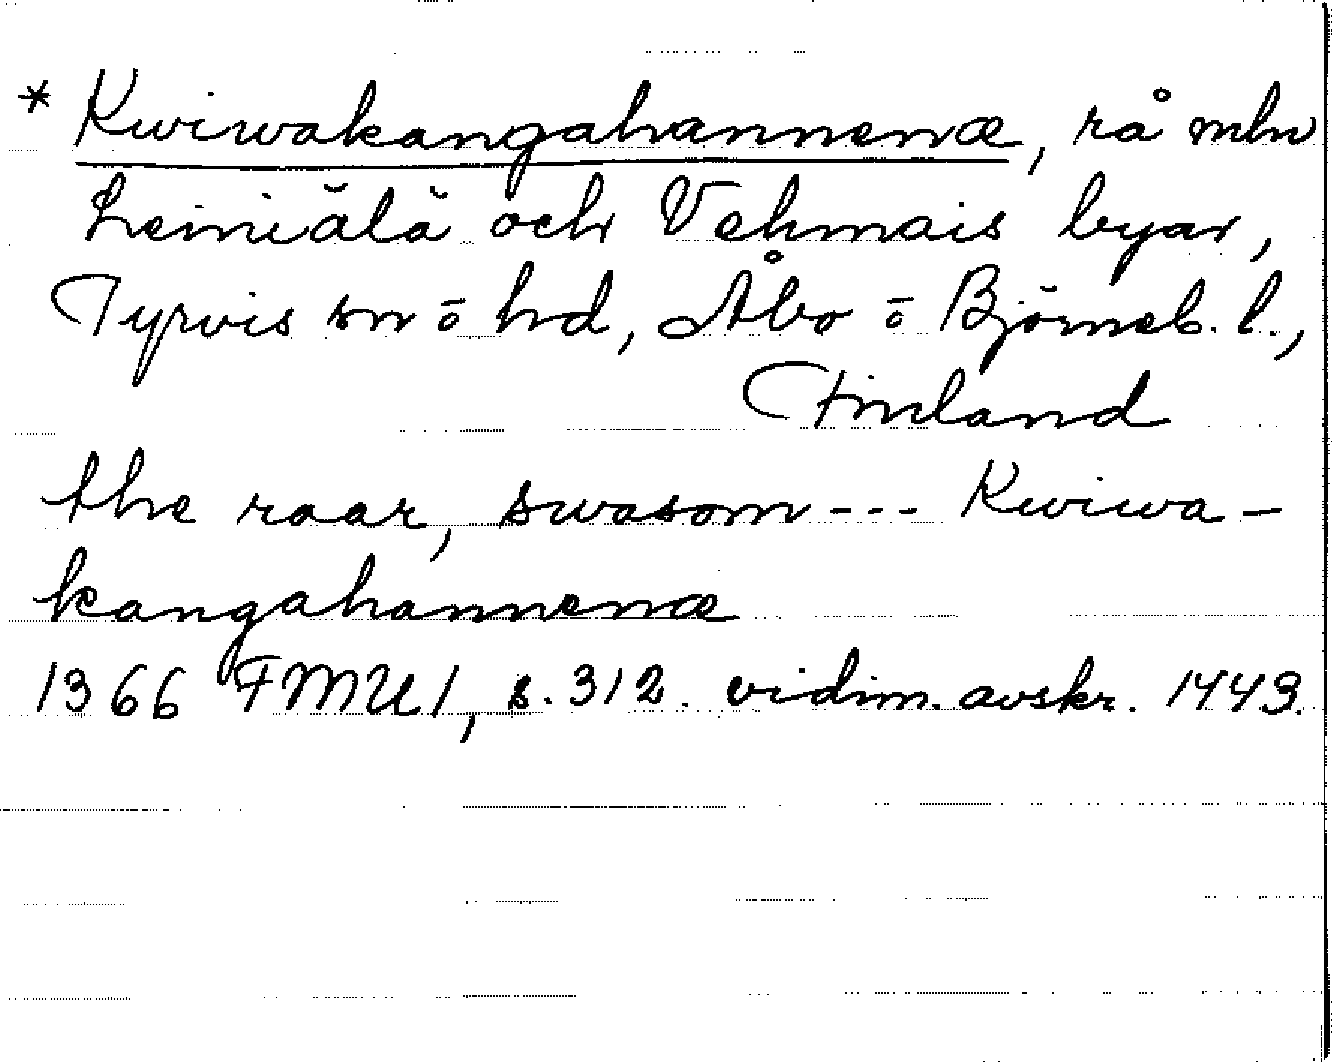 * Kwiwakangahannenæ, rå mln
Leiniälä och Vehmais byar,
Tyrvis sn o hd, Åbo o Björneb. l.,
Finland
the raar, swasom --- Kwiwa-
kangahannenæ
1366 FMU 1, s. 312. vidim. avskr. 1443.